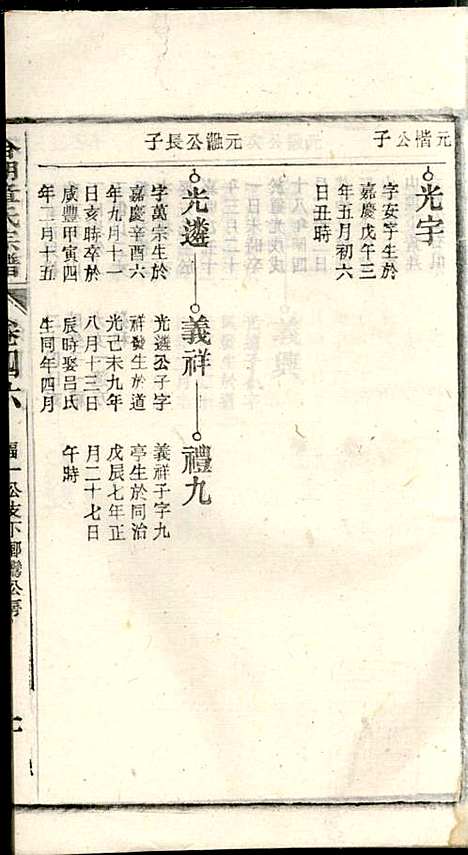 元楷公子
光宇
字安宇生於
嘉慶戊午三
年五月初六
日丑時
元瀜公長子
光遴
字萬宗生於
嘉慶辛酉六
年九月十一
日亥時卒於
咸豐甲寅四
年二月十五
義祥
光遴公子字
祥發生於道
光己未九年
八月十三日
辰時娶呂氏
生同年四月
禮九
義祥子字九
亭生於同治
戊辰七年正
月二十七日
午時
董氏宗譜
卷四六
福一公支下鄒灣公房